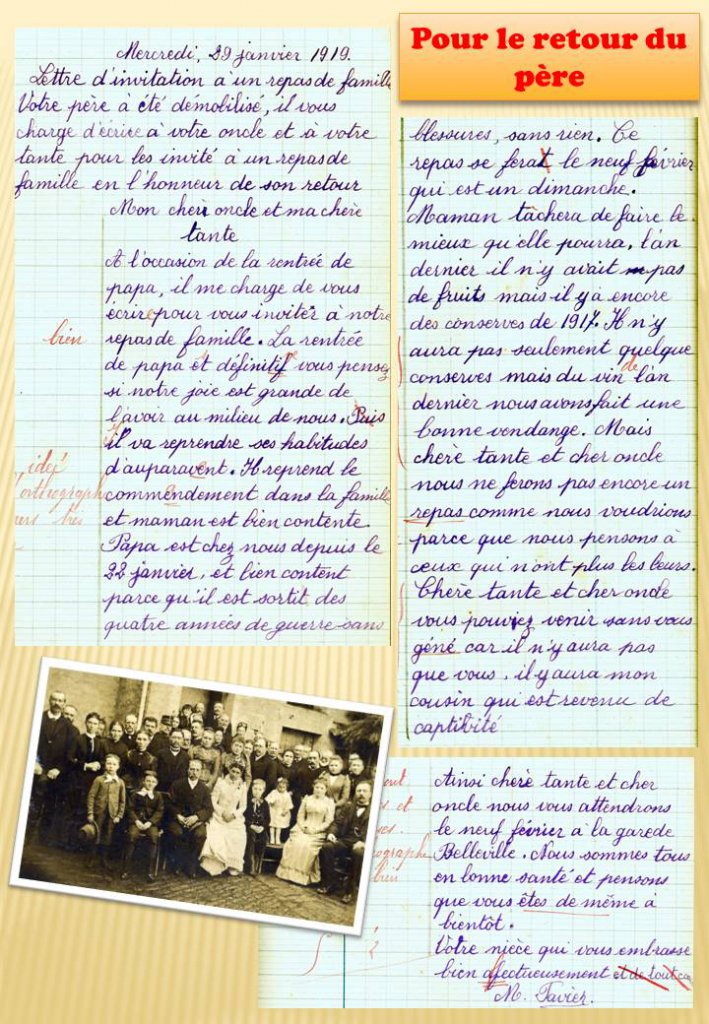 Pour le retour du
père
Mercredi, 29 janvier 1919.
Lettre d'invitation à un repas de famille
Votre père à été démobilisé, il vous
charge d'écrire à votre oncle et à votre
tante pour les invité à un repas de
famille en l'honneur de son retour
Mon chèr oncle et ma chère
tante
A l'occasion de la rentrée de
papa, il me charge de vous
écrire pour vous inviter à notre
repas de famille. La rentrée
bien
de papa et définitif vous pensez
si notre joie est grande de
l'avoir au milieu de nous. Puis
il va reprendre ses habitudes
idée
d'auparavent. Il reprend le
orthographe
commendement dans la famille
très
et maman est bien contente.
Papa est chez nous depuis le
22 janvier, et bien content
parce qu'il est sortit des
quatre années de guerre sans
blessures, sans rien. Ce
repas se ferat le neuf février
qui est un dimanche.
Maman tâchera de faire le
mieux qu'elle pourra, l'an
dernier il n'y avait pas
de fruits mais il y a encore
des conserves de 1917. Il n'y
aura pas seulement quelque
conserves mais du vin de l'an
dernier nous avons fait une
bonne vendange. Mais
chère tante et cher oncle
nous ne ferons pas encore un
repas comme nous voudrions
parce que nous pensons à
ceux qui n'ont plus les leurs.
Chère tante et cher oncle
vous pouviez venir sans vous
géné car il n'y aura pas
que vous, il y aura mon
cousin qui est revenu de
captivité
Ainsi chère tante et cher
oncle nous vous attendrons
le neuf février à la gare de
Belleville. Nous sommes tous
bien
en bonne santé et pensons
que vous êtes de même à
bientôt.
Votre nièce qui vous embrasse
bien affectueusement et de tout
M. Tavier.